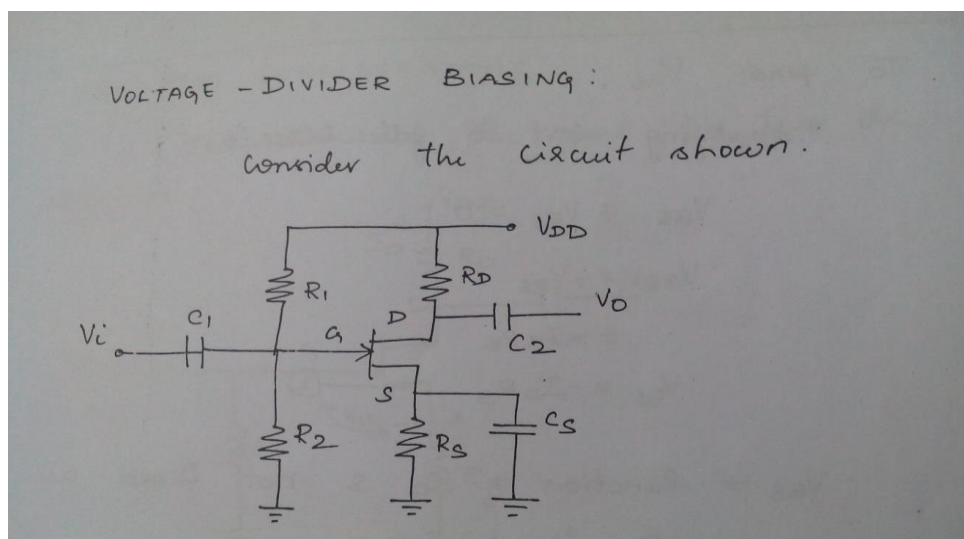 VOLTAGE - DIVIDER BIASING :
consider the circuit shown.
VDD
R1
RD
Vi
C1
G
D
VO
C2
S
R2
RS
CS